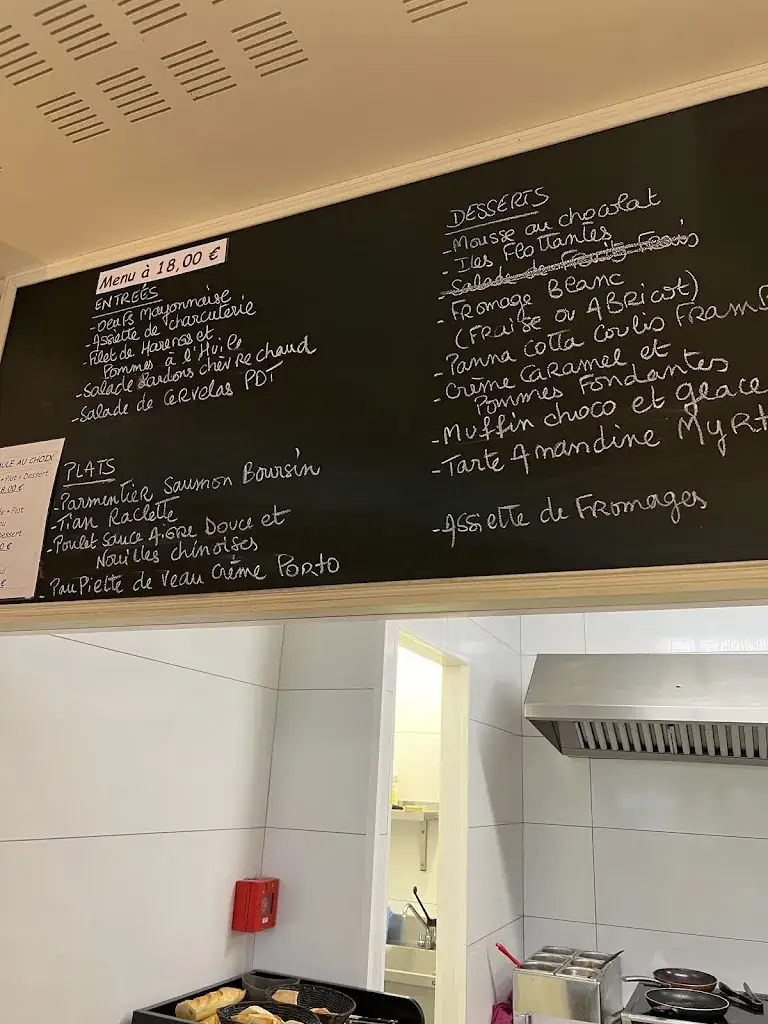 Menu à 18,00 €
ENTREÉS
-Oeufs Mayonnaise
-Assiette de charcuterie
-Filet de Harengs et
Pommes à l'Huile
-Salade Lardons chèvre chaud
-Salade de Cervelas PDT
PLATS
-Parmentier Saumon Boursin
-Tian Raclette
-Poulet Sauce Aigre Douce et
Nouilles chinoises
-PauPiette de veau Crème Porto
DESSERTS
-Mousse au chocolat
-Iles Flottantes
-Salade de Fruits Frais
-Fromage Blanc
(FRaise ou ABRicot)
-Panna Cotta Coulis
-Crème Caramel et
Pommes Fondantes
-Muffin choco et glace
-Tarte Amandine
-Assiette de Fromages
AU CHOIX
+ Plat + Dessert
+ Plat